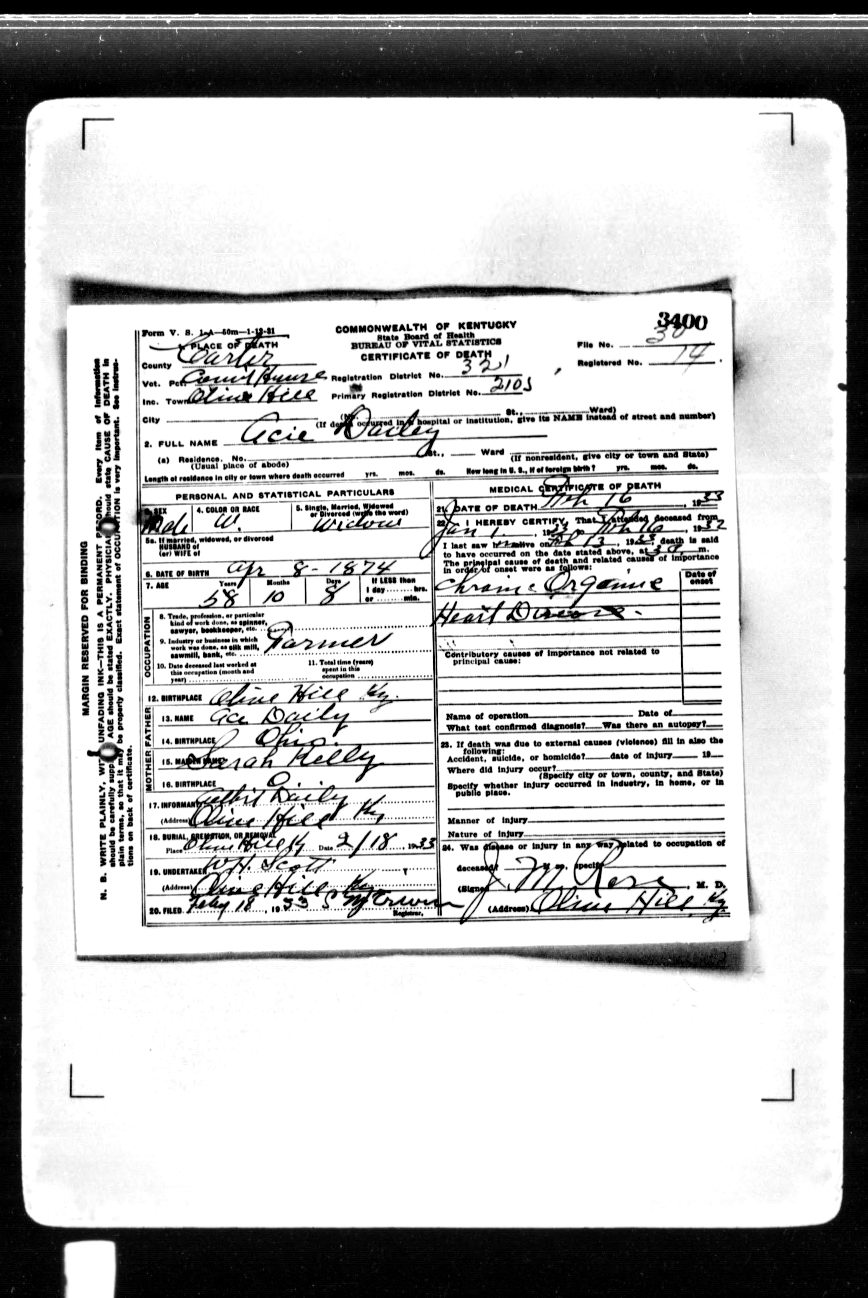 3400
Form V. S. 1-A—50m—1-12-31
COMMONWEALTH OF KENTUCKY
State Board of Health
BUREAU OF VITAL STATISTICS
CERTIFICATE OF DEATH
File No.
Registered No. 14
1. PLACE OF DEATH
County Carter
Vot. Pct. Court House Registration District No. 321
Inc. Town Olive Hill Primary Registration District No. 2105
City (No. St., Ward)
(If death occurred in a hospital or institution, give its NAME instead of street and number)
2. FULL NAME Acie Dailey
(a) Residence. No. St., Ward (If nonresident, give city or town and State)
(Usual place of abode)
Length of residence in city or town where death occurred yrs. mos. ds. How long in U. S., if of foreign birth? yrs. mos. ds.
PERSONAL AND STATISTICAL PARTICULARS
3. SEX Male
4. COLOR OR RACE W.
5. Single, Married, Widowed or Divorced (write the word) Widow
5a. If married, widowed, or divorced
HUSBAND of
(or) WIFE of
6. DATE OF BIRTH Apr 8-1874
7. AGE Years 58 Months 10 Days 8 If LESS than 1 day hrs. or min.
OCCUPATION
8. Trade, profession, or particular
kind of work done, as spinner,
sawyer, bookkeeper, etc.
9. Industry or business in which
work was done, as silk mill,
sawmill, bank, etc.
Farmer
10. Date deceased last worked at
this occupation (month and
year)
11. Total time (years)
spent in this
occupation
12. BIRTHPLACE Olive Hill Ky.
FATHER
13. NAME Ace Daily
14. BIRTHPLACE Ohio
MOTHER
15. MAIDEN NAME Sarah Kelly
16. BIRTHPLACE O
17. INFORMANT Daily
(Address) Olive Hill Ky
18. BURIAL, CREMATION, OR REMOVAL
Place Olive Hill Ky Date 2/18 1933
19. UNDERTAKER W H. Scott
(Address) Olive Hill Ky
20. FILED Feby 18, 1933 Erwin
Registrar.
MEDICAL CERTIFICATE OF DEATH
21. DATE OF DEATH Feb 16, 1933
22. I HEREBY CERTIFY, That I attended deceased from
Jan 1, 1933 Feb 16, 1932
I last saw alive on Feb 13, 1933 death is said
to have occurred on the date stated above, at m.
The principal cause of death and related causes of importance
in order of onset were as follows:
Date of onset
Chronic Organic
Heart Disease.
Contributory causes of importance not related to
principal cause:
Name of operation Date of
What test confirmed diagnosis? Was there an autopsy?
23. If death was due to external causes (violence) fill in also the
following:
Accident, suicide, or homicide? date of injury 19
Where did injury occur?
(Specify city or town, county, and State)
Specify whether injury occurred in industry, in home, or in
public place.
Manner of injury
Nature of injury
24. Was disease or injury in any way related to occupation of
deceased? specify
(Signed) J. M Rose, M. D.
(Address) Olive Hill Ky.
MARGIN RESERVED FOR BINDING
N. B. WRITE PLAINLY, WITH UNFADING INK—THIS IS A PERMANENT RECORD. Every item of information
should be carefully supplied. AGE should be stated EXACTLY. PHYSICIANS should state CAUSE OF DEATH in
plain terms, so that it may be properly classified. Exact statement of OCCUPATION is very important. See instruc-
tions on back of certificate.